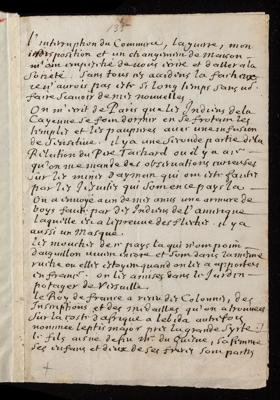 135
l'interruption du Commerce, la guerre, mon
indisposition et un changement de maison
m'ont empesché de vous ecrire et d'aller a la
Societé. Sans tous ces accidens la
je n'aurois pas esté si long temps sans vous
faire scavoir de mes nouvelles
On m'ecrit de Paris que les Indiens de la
Cayenne se font dormir en se frotant les
temples et les paupieres avec une infusion
de . il y a une seconde partie de la
Relation du Pere Tachard ou il y a
qu'on me mande des observations curieuses
sur les mines d'aymant qui ont esté faites
par les Jesuites qui sont en ce pays la
On a envoyé a un de mes amis une armure de
boys faite par des Indiens de l'amerique
laquelle est a l'epreuve des fleches il y a
aussi un Masque.
les mouches de ce pays la qui n'ont point
d'aiguillon vivent encore et sont dans la mesme
ruche ou elles estoyent quand on les a apportées
en france. on les a mises dans le Jardin
potager de Versaille.
le Roy de france a receu des Colonnes, des
Inscriptions et des medailles qu'on a trouvées
sur la coste d'afrique a lebida autrefois
nommée leptis major pres la grande Syrte
le fils aisné de feu Mr. du Quesne, sa femme
ses enfans et deux de ses freres sont partis